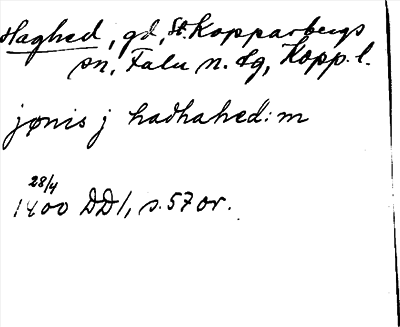 Haghed, gd, St. Kopparbergs
sn, Falu n. tg, Kopp. l.
jønis j hadhahed:m
28/4
1400 DD1, s. 57 or.